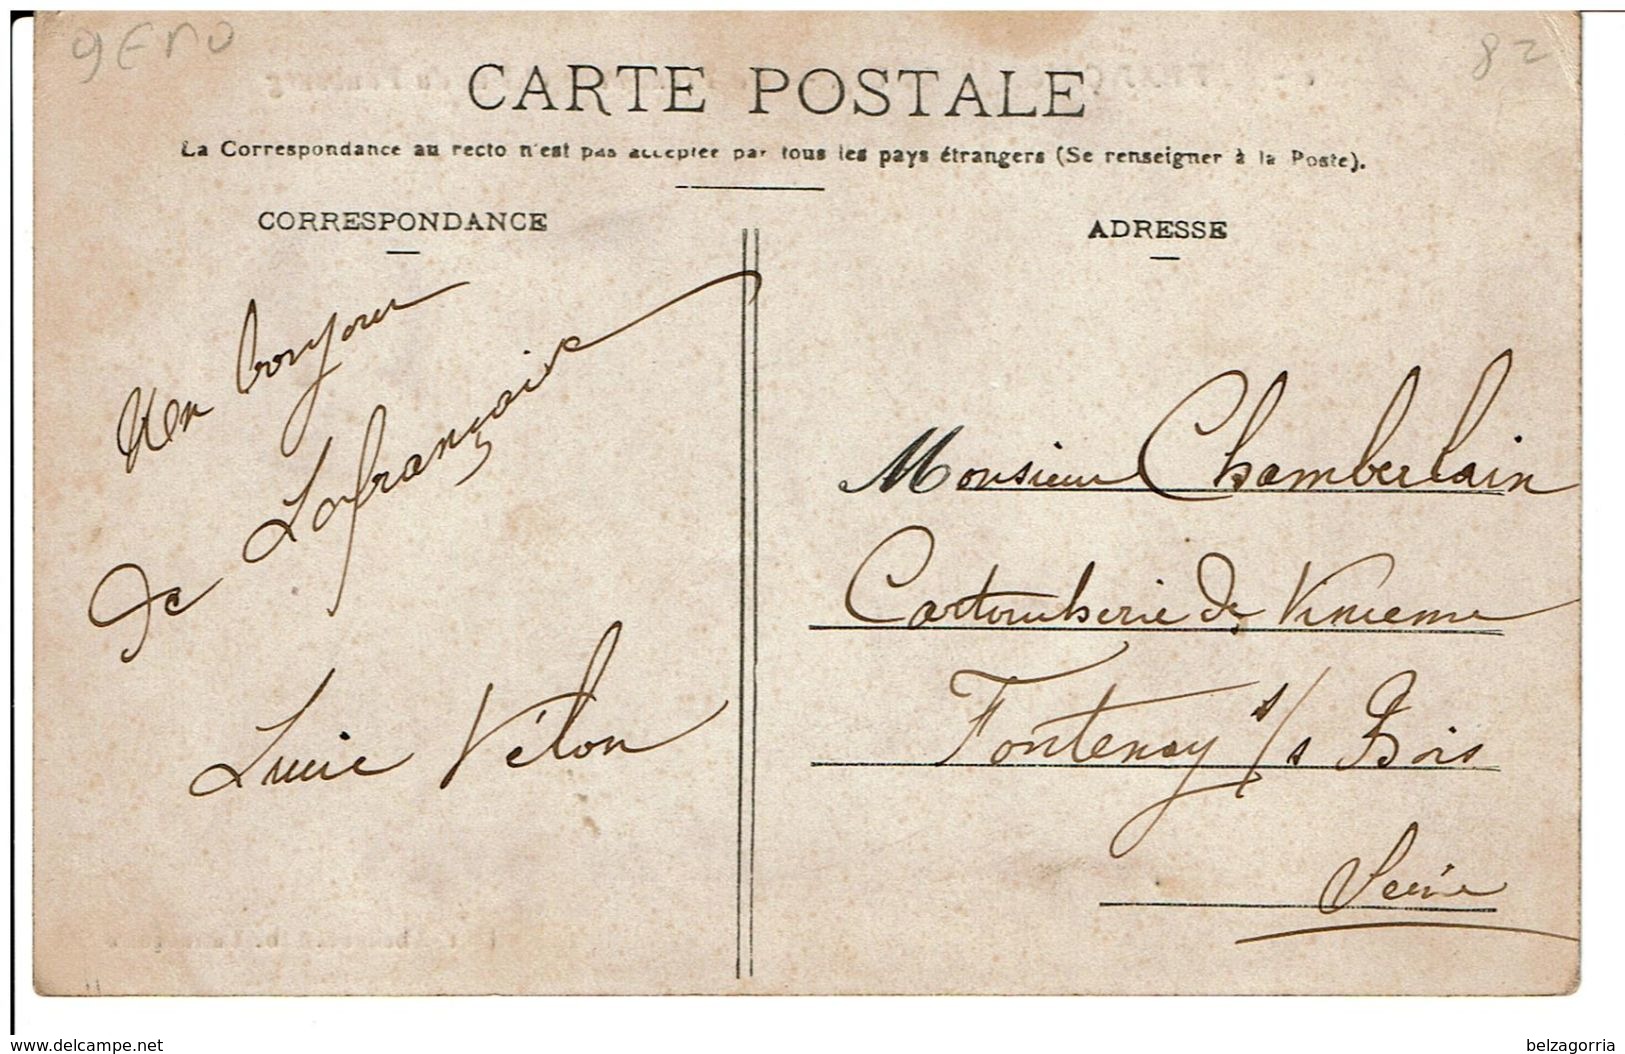 gEno
82
CARTE POSTALE
La Correspondance au recto n'est pas acceptée par tous les pays étrangers (Se renseigner à la Poste).
CORRESPONDANCE
Un bonjour
de Lafrançaise
Lucie Vélon
ADRESSE
Monsieur Chamberlain
Cartoucherie de Vincennes
Fontenay s/s Bois
Seine
www.delcampe.net
belzagorria